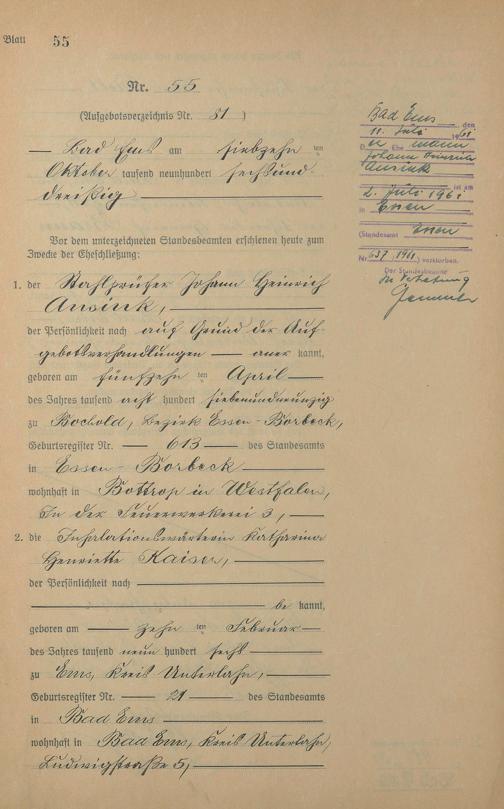 Blatt 55
Nr. 55
(Aufgebotsverzeichnis Nr. 51)
Bad Ems am siebzehn ten
Oktober tausend neunhundert sechsund
dreißig
Vor dem unterzeichneten Standesbeamten erschienen heute zum
Zwecke der Eheschließung:
1. der Stahlprüfer Johann Heinrich
Ansink,
der Persönlichkeit nach auf Grund der Auf-
gebotsverhandlungen — aner kannt,
geboren am fünfzehn ten April
des Jahres tausend acht hundert siebenundneunzig
zu Bochold, Bezirk Essen-Borbeck,
Geburtsregister Nr. 613 des Standesamts
in Essen-Borbeck
wohnhaft in Bottrop in Westfalen,
In der Feuerwerkerei 3,
2. die Inhalationswärterin Katharina
Henriette Kaiser,
der Persönlichkeit nach
be kannt,
geboren am zehn ten Februar
des Jahres tausend neun hundert sechs
zu Ems, Kreis Unterlahn,
Geburtsregister Nr. 21 des Standesamts
in Bad Ems
wohnhaft in Bad Ems, Kreis Unterlahn,
Ludwigstraße 5,
Bad Ems, den
11. Juli 1961
Der Ehemann
Johann Heinrich
Ansink
ist am
2. Juli 1961
in Essen
(Standesamt Essen
Nr. 637/1961) verstorben.
Der Standesbeamte
In Vertretung